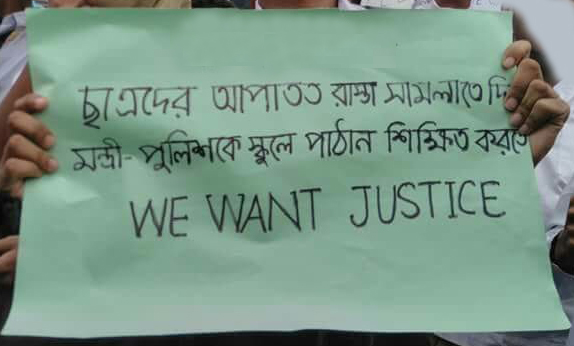 ছাএদের আপাতত রাস্তা সামলাতে দি
মন্ত্রী-পুলিশকে স্কুলে পাঠান শিক্ষিত করতে
WE WANT JUSTICE